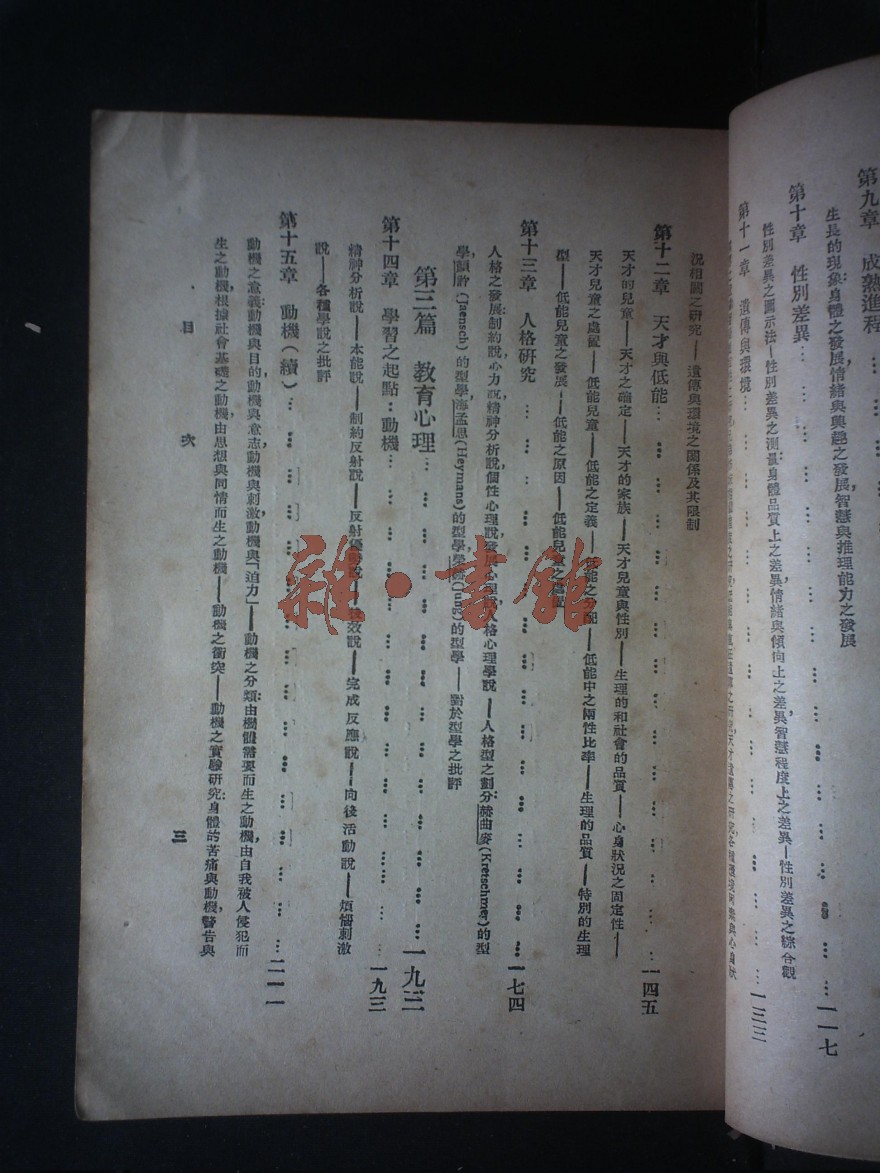 第九章 成熟進程
生長的現象：身體之發展，情緒與興趣之發展，智慧與推理能力之發展
第十章 性別差異……一一七
性別差異之圖示法—性別差異之測量：身體品質上之差異，情緒與傾向上之差異，智慧程度上之差異—性別差異之綜合觀
第十一章 遺傳與環境……一三三
況相關之研究——遺傳與環境之關係及其限制
第十二章 天才與低能……一四五
天才的兒童——天才之確定——天才的家族——天才兒童與性別——生理的和社會的品質——心身狀況之固定性——
天才兒童之處置——低能兒童——低能之定義——低能之分配——低能中之兩性比率——生理的品質——特別的生理
型——低能兒童之發展——低能之原因——低能兒童之處置
第十三章 人格研究……一七四
人格之發展：制約說，心力說，精神分析說，個性心理說，發展心理說，人格心理學說——人格型之劃分：赫曲麥(Kretschmer)的型
學，顏許(Jaensch)的型學，海孟思(Heymans)的型學，(Jung)的型學——對於型學之批評
第三篇 教育心理……一九三
第十四章 學習之起點：動機……一九三
精神分析說——本能說——制約反射說——反射優勢說——效說——完成反應說——向後活動說——煩惱刺激
說——各種學說之批評
第十五章 動機（續）……二一一
動機之意義：動機與目的，動機與意志，動機與刺激，動機與「迫力」——動機之分類：由機體需要而生之動機，由自我被人侵犯而
生之動機，根據社會基礎之動機，由思想與同情而生之動機——動機之衝突——動機之實驗研究：身體的苦痛與動機，警告與
目次
三
雜·書館